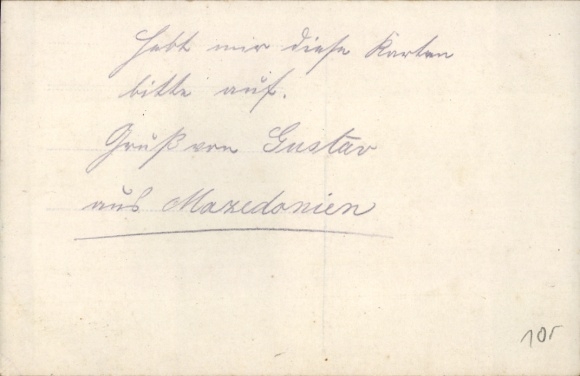 Hebt mir diese Karten
bitte auf.
Gruß von Gustav
aus Mazedonien
10r